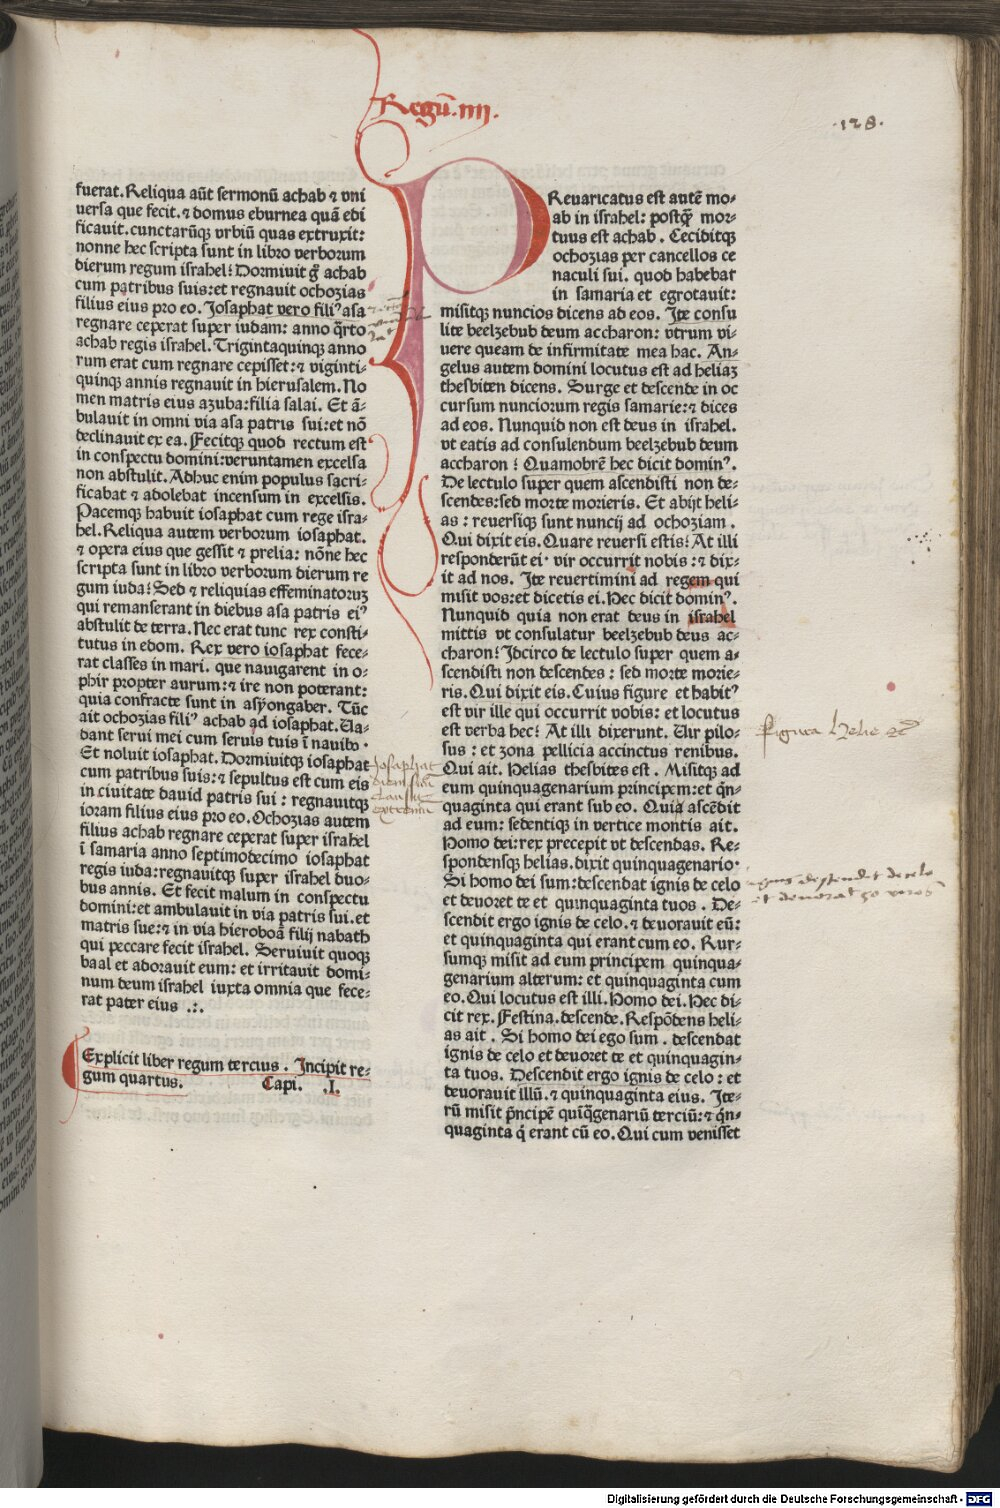 Regū.IIII.
.128.
fuerat. Reliqua aūt sermonū achab ⁊ vni
uersa que fecit. ⁊ domus eburnea quā edi
ficauit. cunctarūqꝫ vrbiū quas extruxit:
nonne hec scripta sunt in libro verborum
dierum regum israhel? Dormiuit g̃ achab
cum patribus suis: et regnauit ochozias
filius eius pro eo. Josaphat vero fili⁹ asa
regnare ceperat super iudam: anno q̄rto
achab regis israhel. Trigintaquinqꝫ anno
rum erat cum regnare cepisset: ⁊ viginti-
quinqꝫ annis regnauit in hierusalem. No
men matris eius azuba: filia salai. Et ā-
bulauit in omni via asa patris sui: et nō
declinauit ex ea. Fecitqꝫ quod rectum est
in conspectu domini: veruntamen excelsa
non abstulit. Adhuc enim populus sacri-
ficabat ⁊ adolebat incensum in excelsis.
Pacemqꝫ habuit iosaphat cum rege isra-
hel. Reliqua autem verborum iosaphat.
⁊ opera eius que gessit ⁊ prelia: nōne hec
scripta sunt in libro verborum dierum re
gum iuda? Sed ⁊ reliquias effeminatorꝝ
qui remanserant in diebus asa patris ei⁹
abstulit de terra. Nec erat tunc rex consti-
tutus in edom. Rex vero iosaphat fece-
rat classes in mari. que nauigarent in o-
phir propter aurum: ⁊ ire non poterant:
quia confracte sunt in asyongaber. Tūc
ait ochozias fili⁹ achab ad iosaphat. Ua-
dant serui mei cum seruis tuis ī nauibo.
Et noluit iosaphat. Dormiuitqꝫ iosaphat
cum patribus suis: ⁊ sepultus est cum eis
in ciuitate dauid patris sui: regnauitqꝫ
ioram filius eius pro eo. Ochozias autem
filius achab regnare ceperat super israhel
ī samaria anno septimodecimo iosaphat
regis iuda: regnauitqꝫ super israhel duo-
bus annis. Et fecit malum in conspectu
domini: et ambulauit in via patris sui. et
matris sue: ⁊ in via hieroboā filij nabath
qui peccare fecit israhel. Seruiuit quoqꝫ
baal et adorauit eum: et irritauit domi-
num deum israhel iuxta omnia que fece-
rat pater eius .:.
Explicit liber regum tercius. Incipit re-
gum quartus. Capi. .I.
Josaphat
PReuaricatus est autē mo-
ab in israhel: postq̄ mor-
tuus est achab. Ceciditqꝫ
ochozias per cancellos ce
naculi sui. quod habebat
in samaria et egrotauit:
misitqꝫ nuncios dicens ad eos. Ite consu
lite beelzebub deum accharon: vtrum vi-
uere queam de infirmitate mea hac. An-
gelus autem domini locutus est ad heliaꝫ
thesbiten dicens. Surge et descende in oc
cursum nunciorum regis samarie: ⁊ dices
ad eos. Nunquid non est deus in israhel.
vt eatis ad consulendum beelzebub deum
accharon? Quamobrē hec dicit domin⁹.
De lectulo super quem ascendisti non de-
scendes: sed morte morieris. Et abijt heli-
as: reuersiqꝫ sunt nuncij ad ochoziam.
Qui dixit eis. Quare reuersi estis? At illi
responderūt ei. vir occurrit nobis: ⁊ dix-
it ad nos. Ite reuertimini ad regem qui
misit vos: et dicetis ei. Hec dicit domin⁹.
Nunquid quia non erat deus in israhel
mittis vt consulatur beelzebub deus ac-
charon? Idcirco de lectulo super quem a-
scendisti non descendes: sed morte morie-
ris. Qui dixit eis. Cuius figure et habit⁹
est vir ille qui occurrit vobis: et locutus
est verba hec? At illi dixerunt. Uir pilo-
sus: et zona pellicia accinctus renibus.
Qui ait. Helias thesbites est. Misitqꝫ ad
eum quinquagenarium principem: et q̄n-
quaginta qui erant sub eo. Quia ascēdit
ad eum: sedentiqꝫ in vertice montis ait.
Homo dei: rex precepit vt descendas. Re-
spondensqꝫ helias. dixit quinquagenario.
Si homo dei sum: descendat ignis de celo
et deuoret te et quinquaginta tuos. De-
scendit ergo ignis de celo. ⁊ deuorauit eū:
et quinquaginta qui erant cum eo. Rur-
sumqꝫ misit ad eum principem quinqua-
genarium alterum: et quinquaginta cum
eo. Qui locutus est illi. Homo dei. Hec di-
cit rex. Festina. descende. Respōdens heli-
as ait. Si homo dei ego sum. descendat
ignis de celo et deuoret te et quinquagin-
ta tuos. Descendit ergo ignis de celo: et
deuorauit illū. ⁊ quinquaginta eius. Ite-
rū misit p̄ncipē quīq̄genariū terciū: ⁊ q̄n-
quaginta q̄ erant cū eo. Qui cum venisset
Figura Helie
ignis descendit de celo
Digitalisierung gefördert durch die Deutsche Forschungsgemeinschaft - DFG